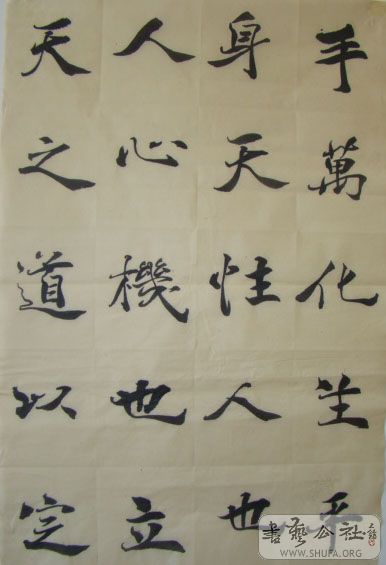 手萬化生乎
身天性人也
人心機也立
天之道以定
書藝公社
WWW.SHUFA.ORG